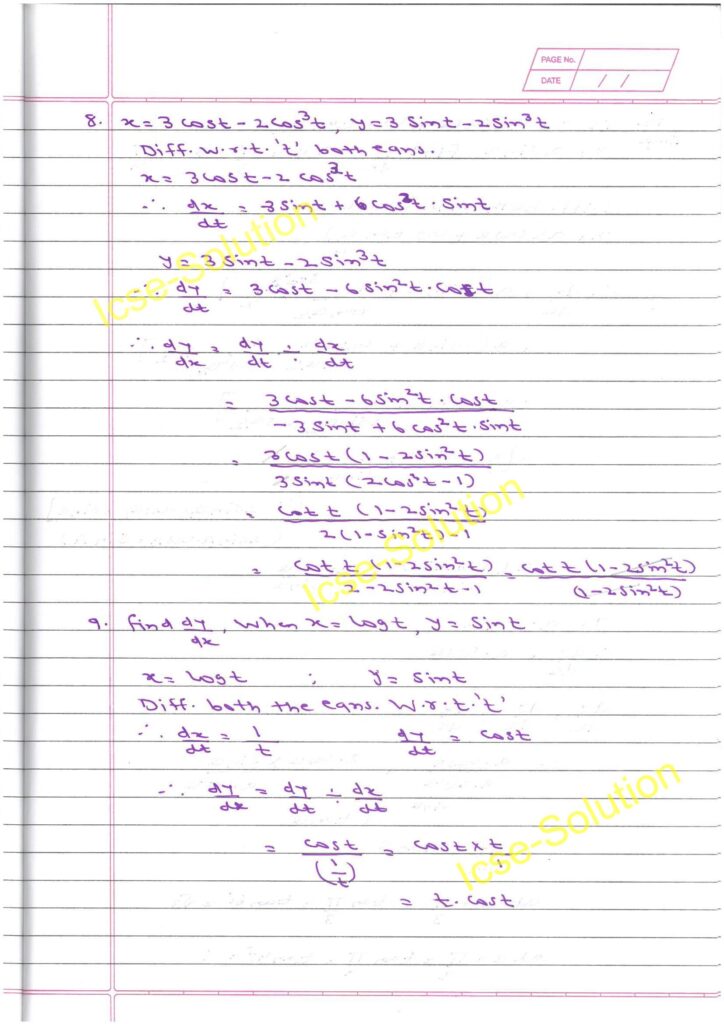 PAGE No.
DATE / /
8. x = 3 cost - 2cos³t, y = 3 Sint - 2Sin³t
Diff. w.r.t. 't' both eqns.
x = 3cost - 2 cos³t
∴ dx/dt = -3sint + 6cos²t . Sint
y = 3 Sint - 2Sin³t
∴ dy/dt = 3cost - 6sin²t . Cost
∴ dy/dx = dy/dt ÷ dx/dt
= (3cost - 6sin²t . cost)/(-3sint + 6cos²t . Sint)
= 3cost(1 - 2sin²t)/3sint(2cos²t - 1)
= cot t (1 - 2sin²t)/2(1 - sin²t) - 1
= cot t (1 - 2sin²t)/2 - 2sin²t - 1 = cot t (1 - 2sin²t)/(1 - 2sin²t)
9. find dy/dx, When x = logt, y = Sint
x = logt ; y = Sint
Diff. both the eqns. w.r.t. 't'
∴ dx/dt = 1/t dy/dt = cost
∴ dy/dx = dy/dt ÷ dx/dt
= cost/(1/t) = cost × t/1
= t . cost
Icse-Solution
Icse-Solution
Icse-Solution